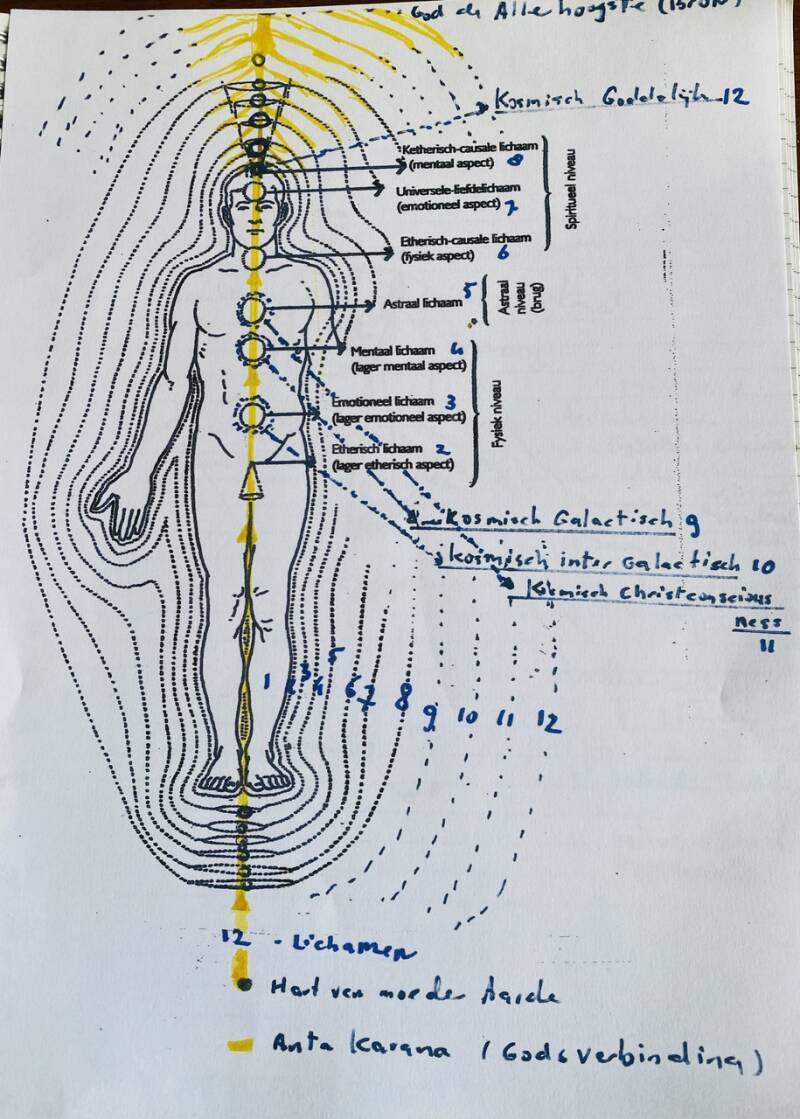 God de Allerhoogste (Bron)
Kosmisch Goddelijk 12
Ketherisch-causale lichaam
(mentaal aspect) 8
Universele-liefdelichaam
(emotioneel aspect) 7
Etherisch-causale lichaam
(fysiek aspect) 6
Spiritueel niveau
Astraal lichaam 5
Astraal
niveau
(brug)
Mentaal lichaam 4
(lager mentaal aspect)
Emotioneel lichaam 3
(lager emotioneel aspect)
Etherisch lichaam 2
(lager etherisch aspect)
Fysiek niveau
Kosmisch Galactisch 9
Kosmisch inter Galactisch 10
Kosmisch Christconscious
ness
11
1 2 3 4 5 6 7 8 9 10 11 12
12 - Lichamen
Hart van moeder Aarde
Anta Karana (Godsverbinding)